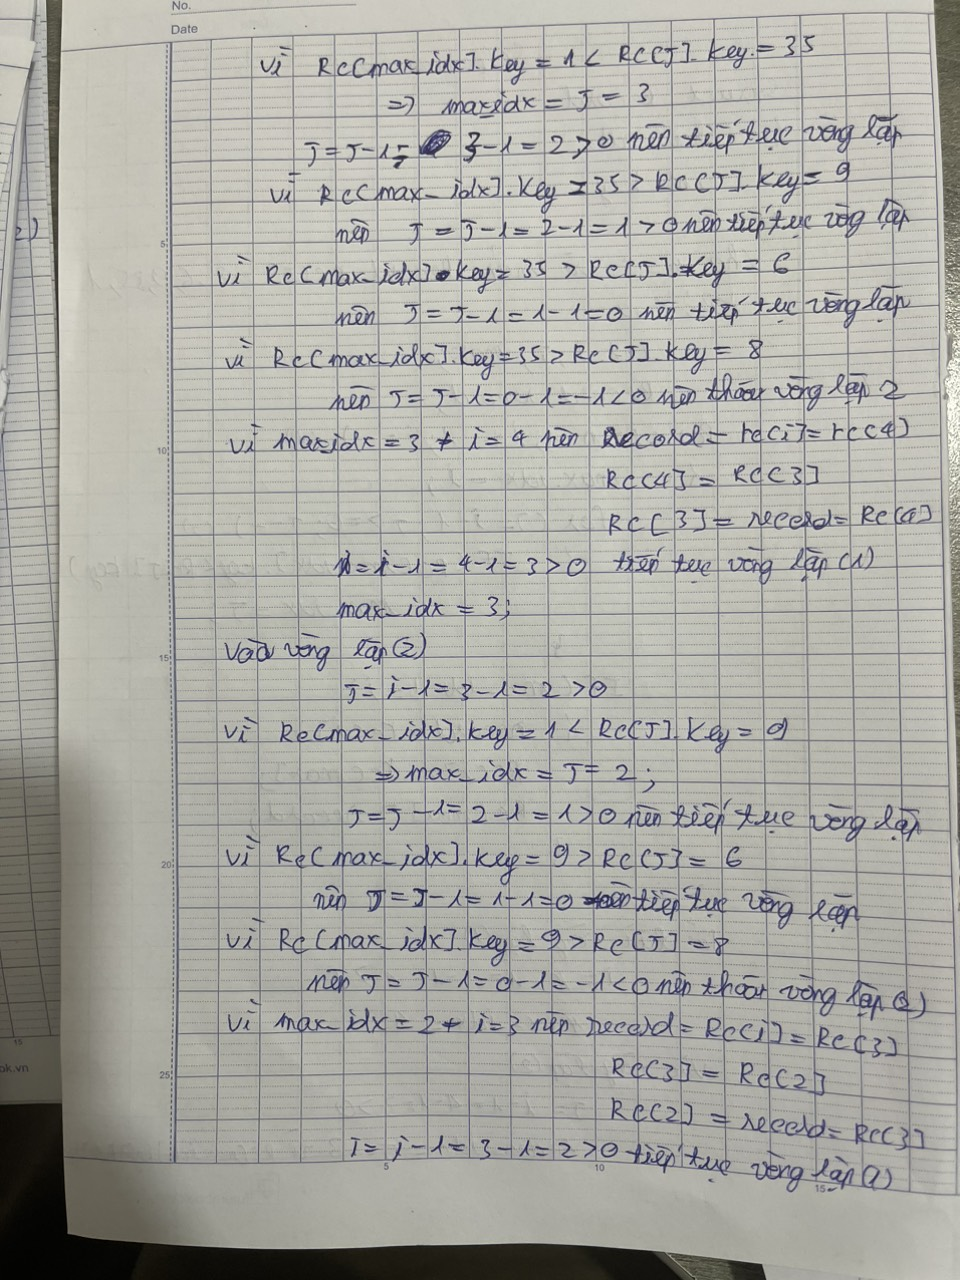 No.
Date
Vì Rc[max_idx].Key = 1 < Rc[J].Key = 35
=> maxidx = J = 3
J = J-1 = 3-1 = 2 > 0 nên tiếp tục vòng lặp
Vì Rc[max_idx].Key = 35 > Rc[J].Key = 9
nên J = J-1 = 2-1 = 1 > 0 nên tiếp tục vòng lặp
Vì Rc[max_idx].Key = 35 > Rc[J].Key = 6
nên J = J-1 = 1-1 = 0 nên tiếp tục vòng lặp
Vì Rc[max_idx].Key = 35 > Rc[J].Key = 8
nên J = J-1 = 0-1 = -1 < 0 nên thoát vòng lặp 2
Vì maxidx = 3 ≠ i = 4 nên Record = rc[i] = rc[4]
Rc[4] = Rc[3]
Rc[3] = record = Rc[4]
i = i-1 = 4-1 = 3 > 0 tiếp tục vòng lặp (1)
max_idx = 3;
Vào vòng lặp (2)
J = i-1 = 3-1 = 2 > 0
Vì Rc[max_idx].Key = 1 < Rc[J].Key = 9
=> max_idx = J = 2;
J = J-1 = 2-1 = 1 > 0 nên tiếp tục vòng lặp
Vì Rc[max_idx].Key = 9 > Rc[J] = 6
nên J = J-1 = 1-1 = 0 nên tiếp tục vòng lặp
Vì Rc[max_idx].Key = 9 > Rc[J] = 8
nên J = J-1 = 0-1 = -1 < 0 nên thoát vòng lặp (2)
Vì max_idx = 2 ≠ i = 3 nên record = Rc[i] = Rc[3]
Rc[3] = Rc[2]
Rc[2] = record = Rc[3]
I = i-1 = 3-1 = 2 > 0 tiếp tục vòng lặp (1)
5
10
15
20
25
5
10
15
2)
15
ok.vn